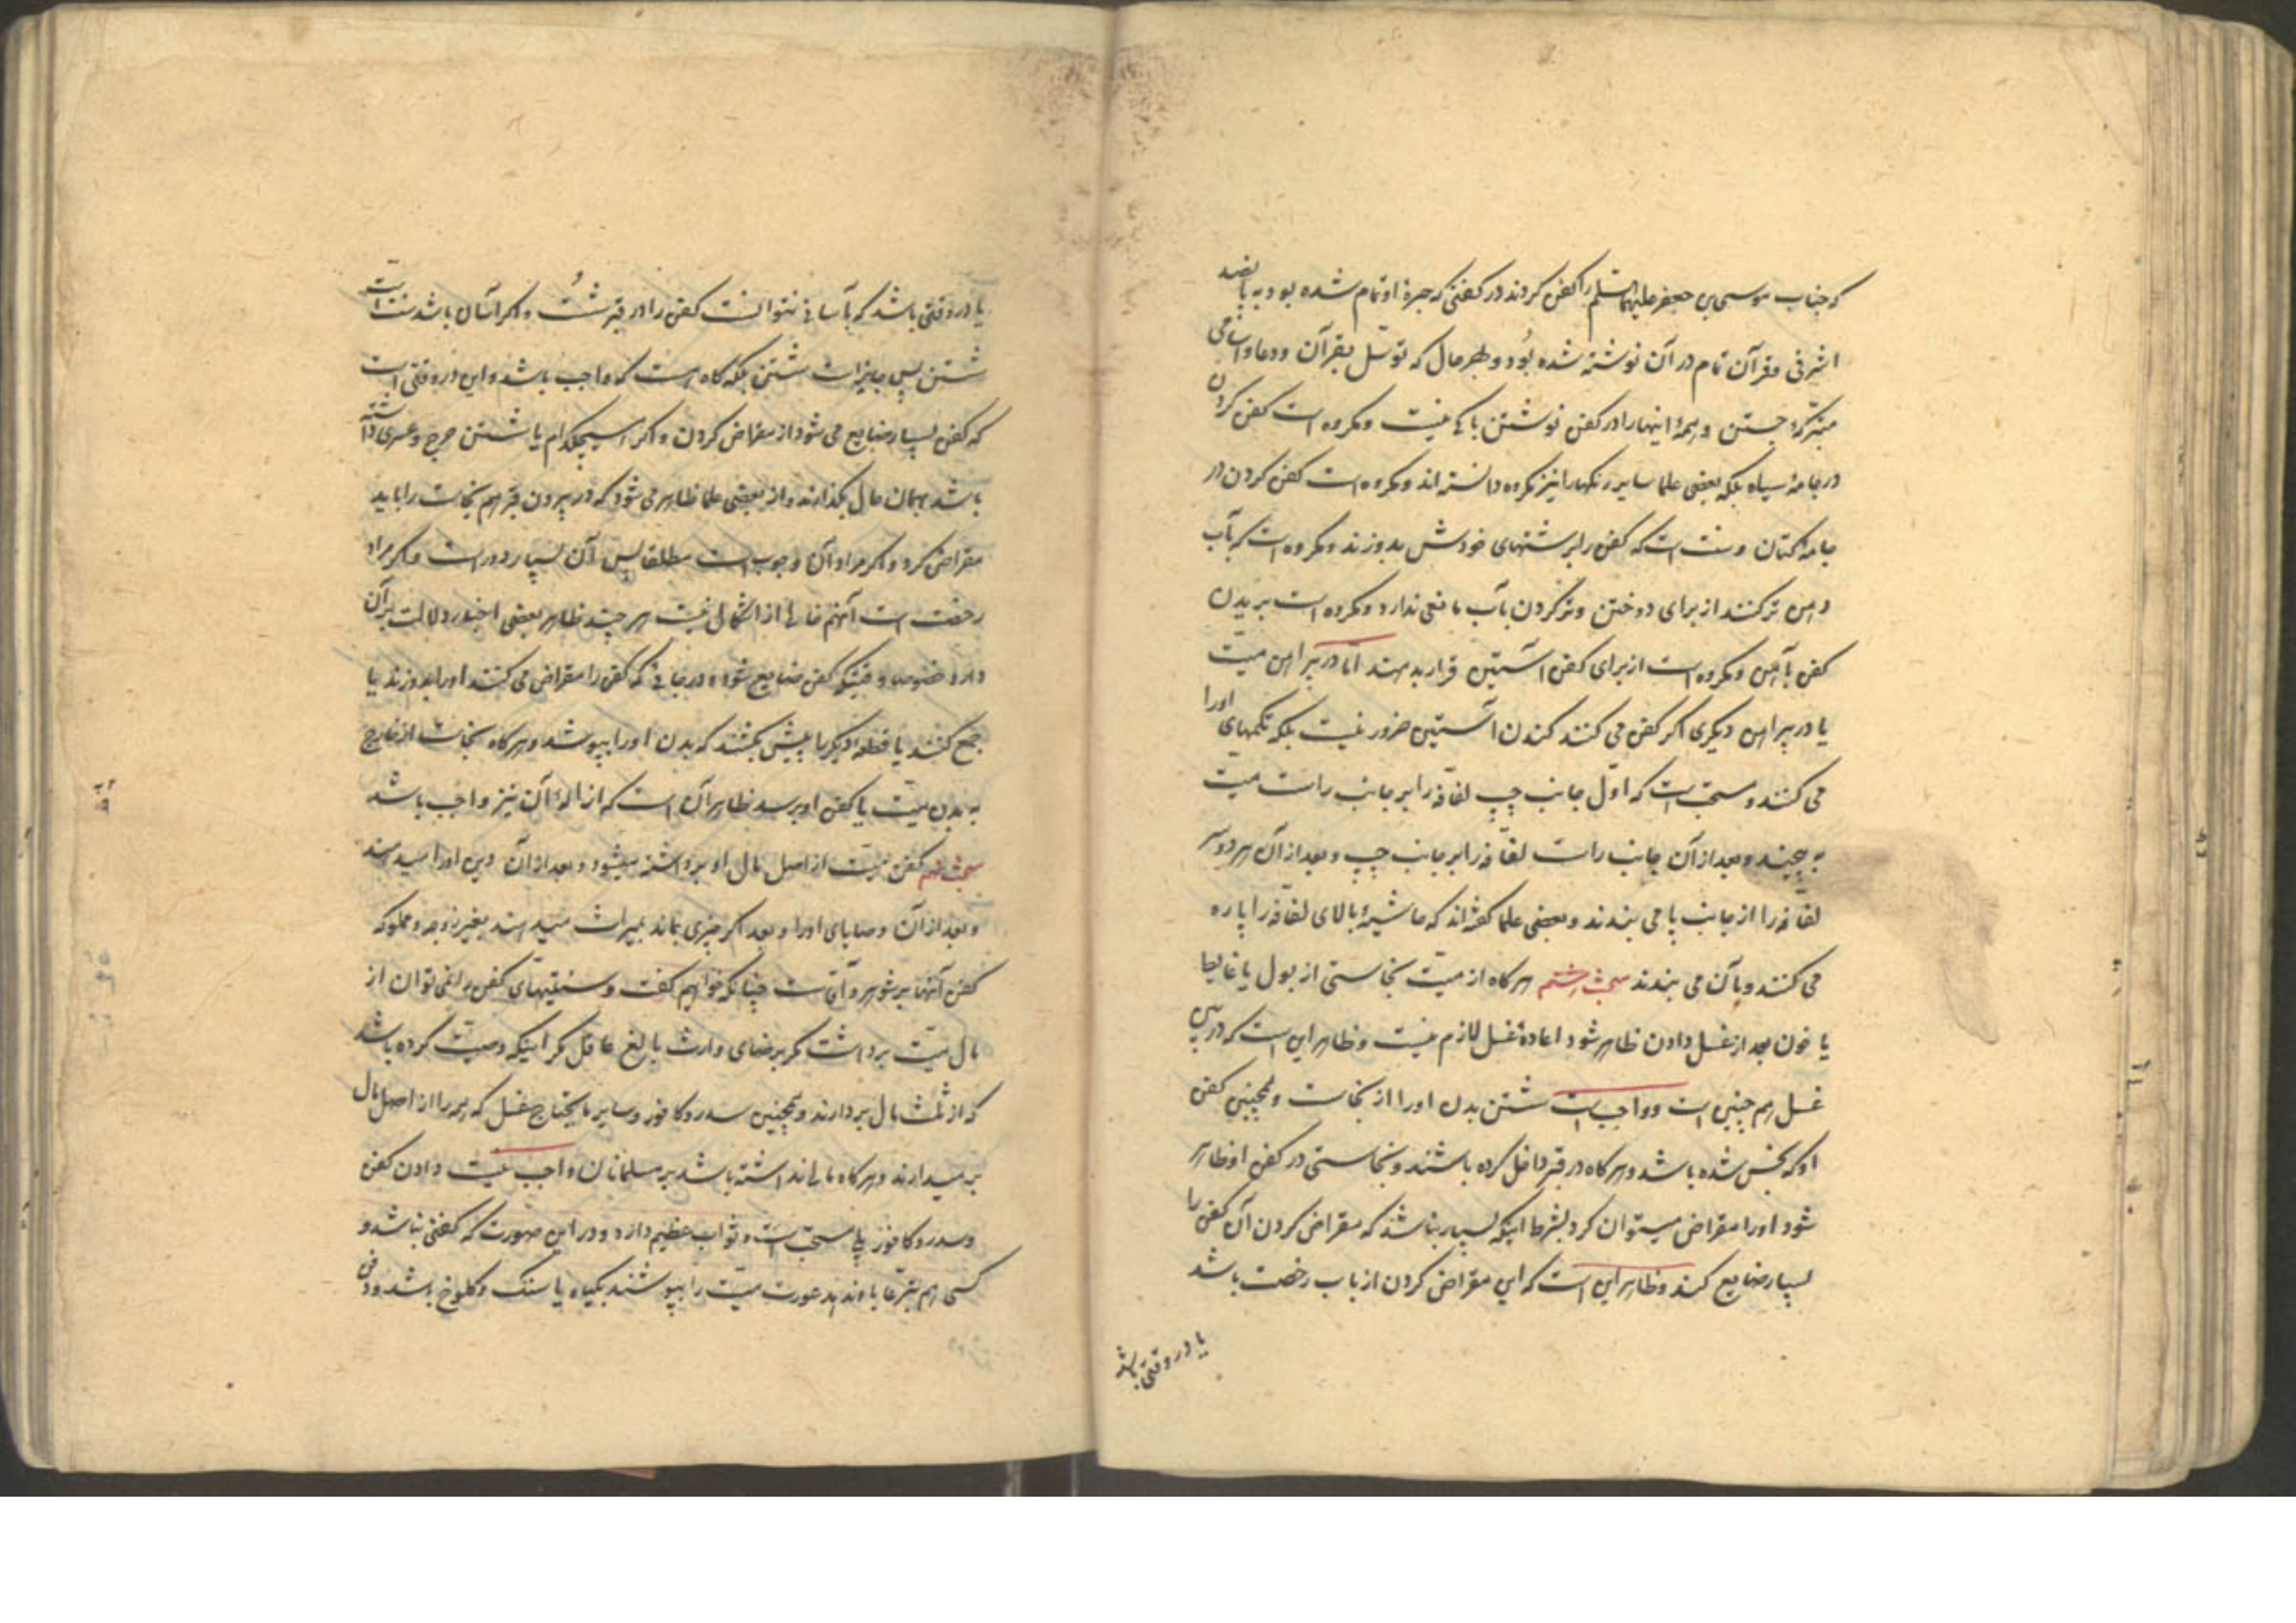 که جناب موسی بن جعفر علیهما السلم را کفن کردند در کفنی که حبرهٔ او تمام شده بود به پانصد
اشرفی و قرآن تمام در آن نوشته شده بود و بهر حال که توسّل بقرآن و دعا و اسامی
متبرّکه جستن و همهٔ اینها را در کفن نوشتن باکی نیست و مکروه است کفن کردن
در جامهٔ سیاه بلکه بعضی علما سایر رنگها را نیز مکروه دانسته اند و مکروه است کفن کردن در
جامهٔ کتان و سنت است که کفن را بریشتهای خودش بدوزند و مکروه است که بآب
دهن تر کنند از برای دوختن و تر کردن بآب مانعی ندارد و مکروه است بریدن
کفن بآهن و مکروه است از برای کفن آستین قرار بدهند امّا در پیراهن میّت
یا در پیراهن دیگری اگر کفن می کنند کندن آستین ضرور نیست بلکه تکمهای اورا
می کنند و مستحبّ است که اوّل جانب چپ لفّافه را بر جانب راست میّت
به پیچند و بعد از آن جانب راست لفّافه را بر جانب چپ و بعد از آن هر دو سر
لفّافه را از جانب پا می بندند و بعضی علما گفته اند که حاشیهٔ بالای لفّافه را پاره
می کنند و بآن می بندند مبحث هشتم هر گاه از میّت نجاستی از بول یا غایط
یا خون بعد از غسل دادن ظاهر شود اعادهٔ غسل لازم نیست و ظاهر این است که در بین
غسل هم چنین است و واجب است شستن بدن اورا از نجاست و همچنین کفن
او که نجس شده باشد و هر گاه در قبر داخل کرده باشند و نجاستی در کفن او ظاهر
شود اورا مقراض میتوان کرد بشرط اینکه بسیار نباشد که مقراض کردن آن کفن را
بسیار ضایع کند و ظاهر این است که این مقراض کردن از باب رخصت باشد
یا در وقتی باشد
یا در وقتی باشد که بآسانی نتوانست کفن را در قبر شُست و اگر آسان باشد سنت است
شستن پس جایز است شستن بلکه گاه است که واجب باشد و این در وقتی است
که کفن بسیار ضایع می شود از مقراض کردن و اگر هیچکدام یا شستن حرج و عسری داشته
باشد بهمان حال بگذارند و از بعضی علما ظاهر می شود که در بیرون قبر هم نجاست را باید
مقراض کرد و اگر مراد آن وجوب است مطلقا پس آن بسیار دور است و اگر مراد
رخصت است آنهم خالی از اشکال نیست هر چند ظاهر بعضی اخبار دلالت بر آن
دارد خصوصا وقتیکه کفن ضایع شود و در جائی که کفن را مقراض می کنند اورا بدوزند یا
جمع کنند یا قطعهٔ دیگر را پیش بکشند که بدن اورا بپوشد و هر گاه نجاست از خارج
به بدن میّت یا کفن او برسد ظاهر آن است که ازالهٔ آن نیز واجب باشد
مبحث نهم کفن میّت از اصل مال او برداشته میشود و بعد از آن دین اورا میدهند
و بعد از آن وصایای اورا و بعد اگر چیزی بماند بمیراث میدهند بغیر زوجه و مملوکه
کفن آنها بر شوهر و آقاست چنانکه خواهیم گفت و سنّتیهای کفن را نمی توان از
مال میّت برداشت مگر برضای وارث بالغ عاقل مگر اینکه وصیّت کرده باشد
که از ثلث مال بردارند و همچنین سدر و کافور و سایر مایحتاج غسل که همه را از اصل مال
بر میدارند و هر گاه مالی نداشته باشد بر مسلمانان واجب نیست دادن کفن
و سدر و کافور بلی مستحبّ است و ثواب عظیم دارد و در این صورت که کفنی نباشد و
کسی هم تبرّعا باو ندهد عورت میّت را بپوشند بگیاه یا سنگ و کلوخ باشد و دفن